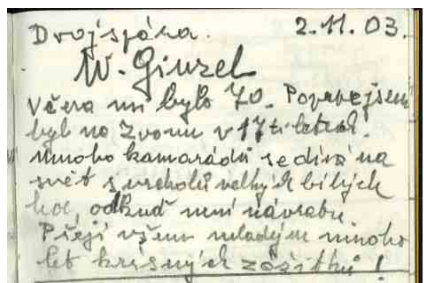 Dvojspára. 2.11.03.
W. Ginzel
Včera mi bylo 70. Poprvé jsem
byl na Zvonu v 17ti letech.
mnoho kamarádů se dívá na
svět s vrcholů velkých bílých
hor, odkuď není návratu.
Přeji všem mladým mnoho
let krásných zážitků!